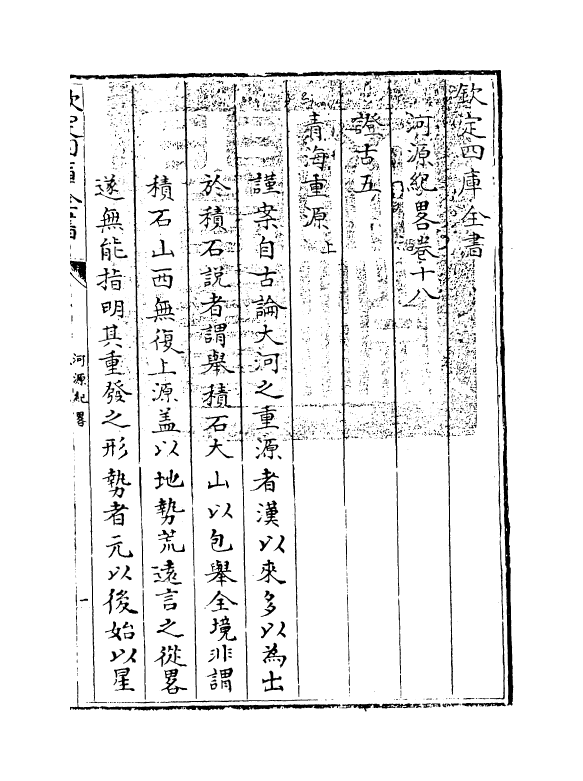 欽定四庫全書
河源紀畧卷十八
證古五
青海重源上
謹案自古論大河之重源者漢以來多以為出
於積石說者謂舉積石大山以包舉全境非謂
積石山西無復上源盖以地勢荒遠言之從畧
遂無能指明其重發之形勢者元以後始以星
欽定四庫全書
河源紀畧
一